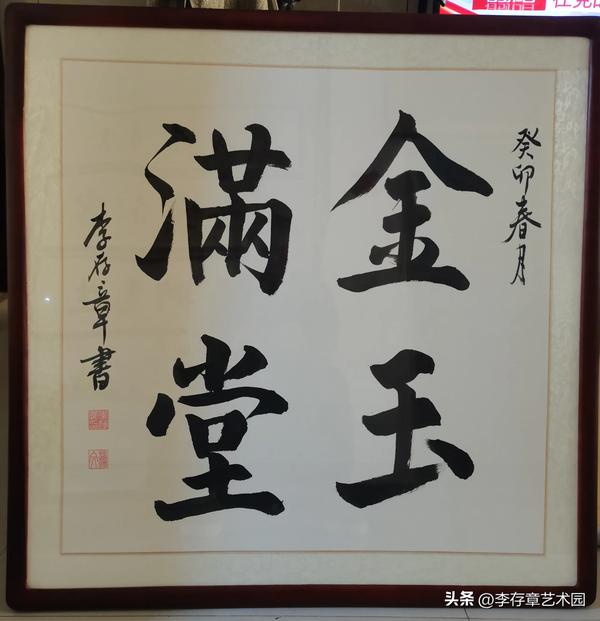 癸卯春月
金玉
滿堂
李存章書
头条 @李存章艺术园